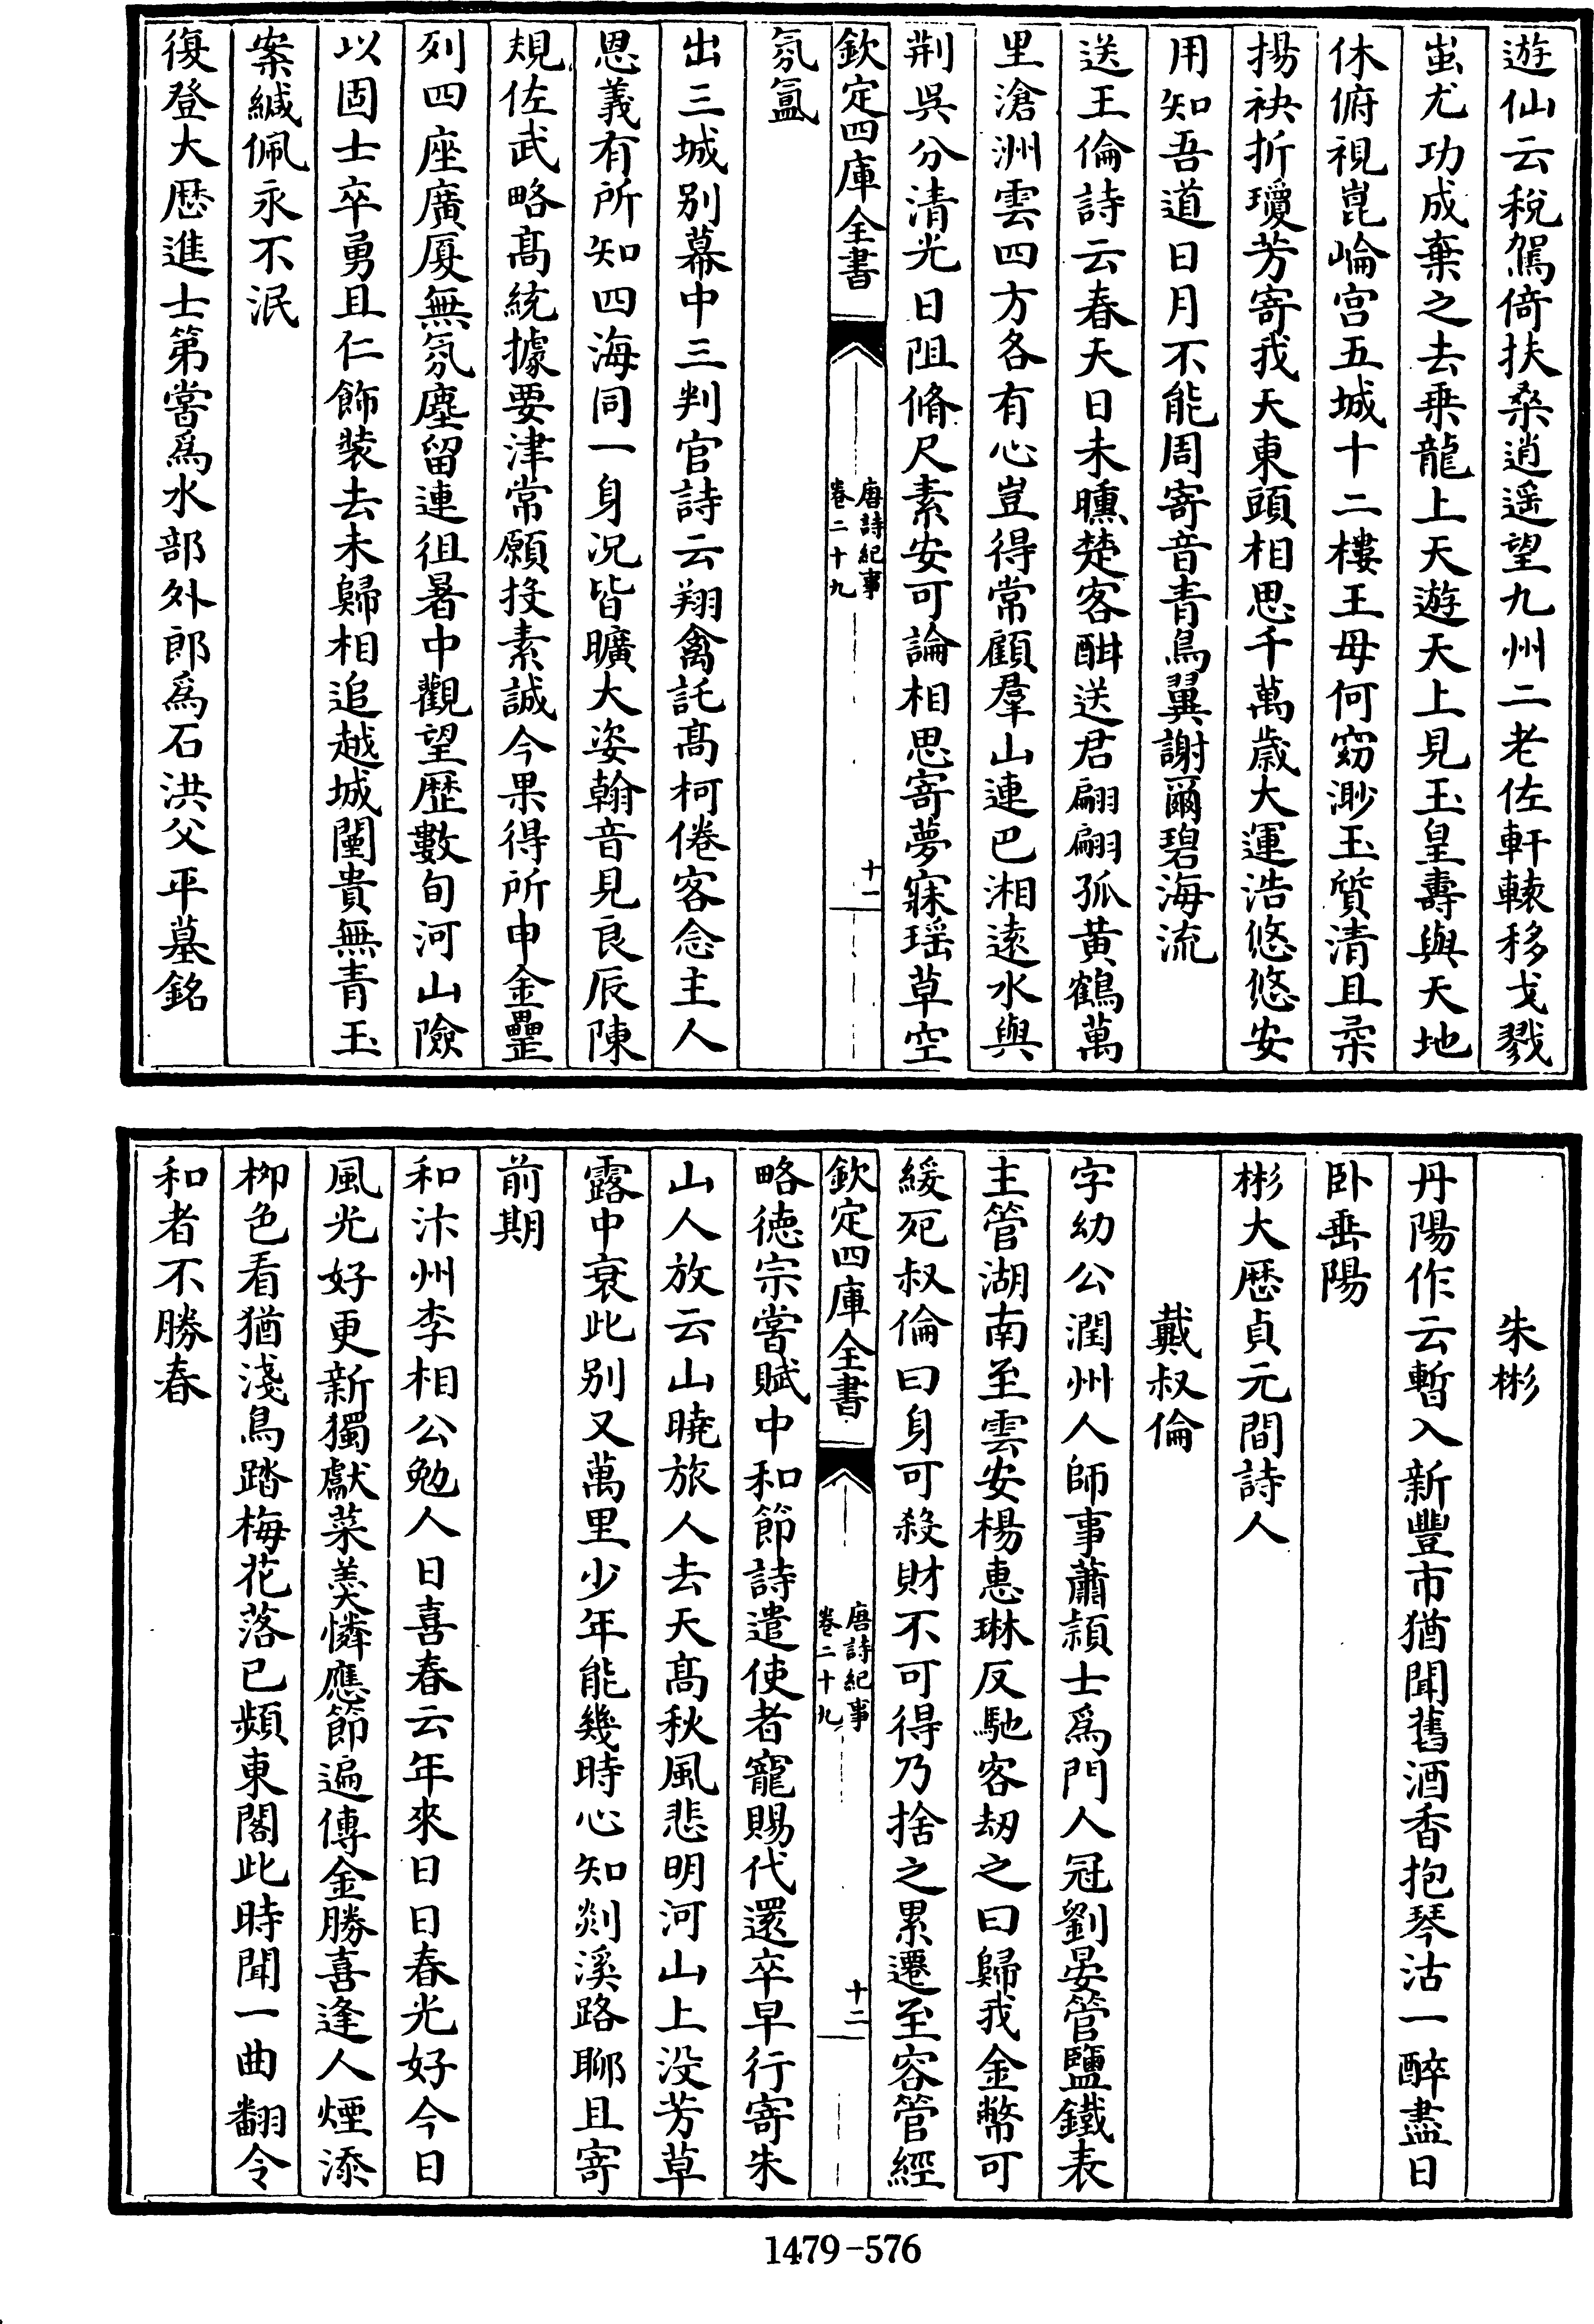 遊仙云稅駕倚扶桑逍遥望九州二老佐軒轅移戈戮
蚩尤功成棄之去乗龍上天遊天上見玉皇壽與天地
休俯視崑崘宫五城十二樓王母何窈渺玉質清且柔
揚袂折瓊芳寄我天東頭相思千萬歲大運浩悠悠安
用知吾道日月不能周寄音青鳥翼謝爾碧海流
送王倫詩云春天日未曛楚客酣送君翩翩孤黄鶴萬
里滄洲雲四方各有心豈得常顧羣山連巴湘逺水與
荆吳分清光日阻脩尺素安可論相思寄夢寐瑶草空
欽定四庫全書
唐詩紀事
卷二十九
十一
氛氲
出三城别幕中三判官詩云翔禽託髙柯倦客念主人
恩義有所知四海同一身况皆曠大姿翰音見良辰陳
規佐武略髙統據要津常願投素誠今果得所申金罍
列四座廣厦無氛塵留連徂暑中觀望歴數旬河山險
以固士卒勇且仁飾装去未歸相追越城闉貴無青玉
案緘佩永不泯
復登大厯進士第嘗爲水部外郎爲石洪父平墓銘
朱彬
丹陽作云暫入新豐市猶聞舊酒香抱琴沽一醉盡日
卧垂陽
彬大厯貞元間詩人
戴叔倫
字幼公潤州人師事蕭穎士爲門人冠劉晏管鹽鐵表
主管湖南至雲安楊惠琳反馳客刼之曰歸我金幣可
緩死叔倫曰身可殺財不可得乃捨之累遷至容管經
欽定四庫全書
唐詩紀事
卷二十九
十二
略徳宗嘗賦中和節詩遣使者寵賜代還卒早行寄朱
山人放云山曉旅人去天髙秋風悲明河山上没芳草
露中衰此别又萬里少年能幾時心知剡溪路聊且寄
前期
和汴州李相公勉人日喜春云年來日日春光好今日
風光好更新獨獻菜羮憐應節遍傳金勝喜逢人煙添
栁色看猶淺鳥踏梅花落已頻東閣此時聞一曲翻令
和者不勝春
1479-576